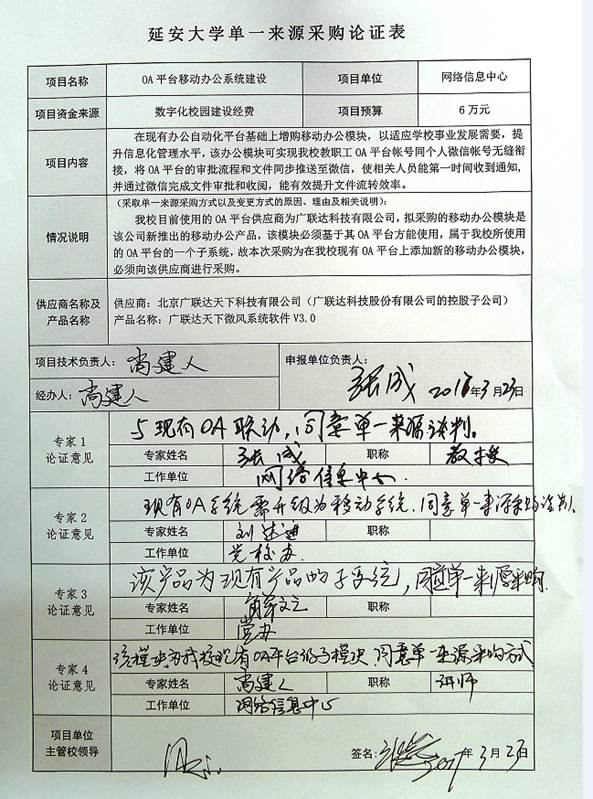 延安大学单一来源采购论证表
项目名称 OA 平台移动办公系统建设 项目单位 网络信息中心
项目资金来源 数字化校园建设经费 项目预算 6 万元
在现有办公自动化平台基础上增购移动办公模块，以适应学校事业发展需要，提
升信息化管理水平，该办公模块可实现我校教职工 OA 平台帐号同个人微信帐号无缝衔
项目内容
接，将 OA 平台的审批流程和文件同步推送至微信，使相关人员能第一时间收到通知，
并通过微信完成文件审批和收阅，能有效提升文件流转效率。
（采取单一来源采购方式以及变更方式的原因、理由及相关说明）：
我校目前使用的 OA 平台供应商为广联达科技有限公司，拟采购的移动办公模块是
情况说明
该公司新推出的移动办公产品，该模块必须基于其 OA 平台方能使用，属于我校所使用
的 OA 平台的一个子系统，故本次采购为在我校现有 OA 平台上添加新的移动办公模块，
必须向该供应商进行采购。
供应商名称及
产品名称
供应商：北京广联达天下科技有限公司（广联达科技股份有限公司的控股子公司）
产品名称：广联达天下微风系统软件 V3.0
项目技术负责人：尚建人 申报单位负责人：
经办人：尚建人 张成 年3月23日
专家 1
论证意见
与现有OA联动，同意单一来源谈判。
专家姓名 张成 职称 教授
工作单位 网络信息中心
专家 2
论证意见
现有OA系统需升级为移动系统，同意单一来源采购谈判。
专家姓名 职称
工作单位 党校办
专家 3
论证意见
该产品为现有产品的子系统，同意单一来源采购
专家姓名 职称
工作单位 党办
专家 4
论证意见
该模块为我校现有OA平台的子模块，同意单一来源采购方式
专家姓名 尚建人 职称 讲师
工作单位 网络信息中心
项目单位
主管校领导
签名： 2017年3月23日